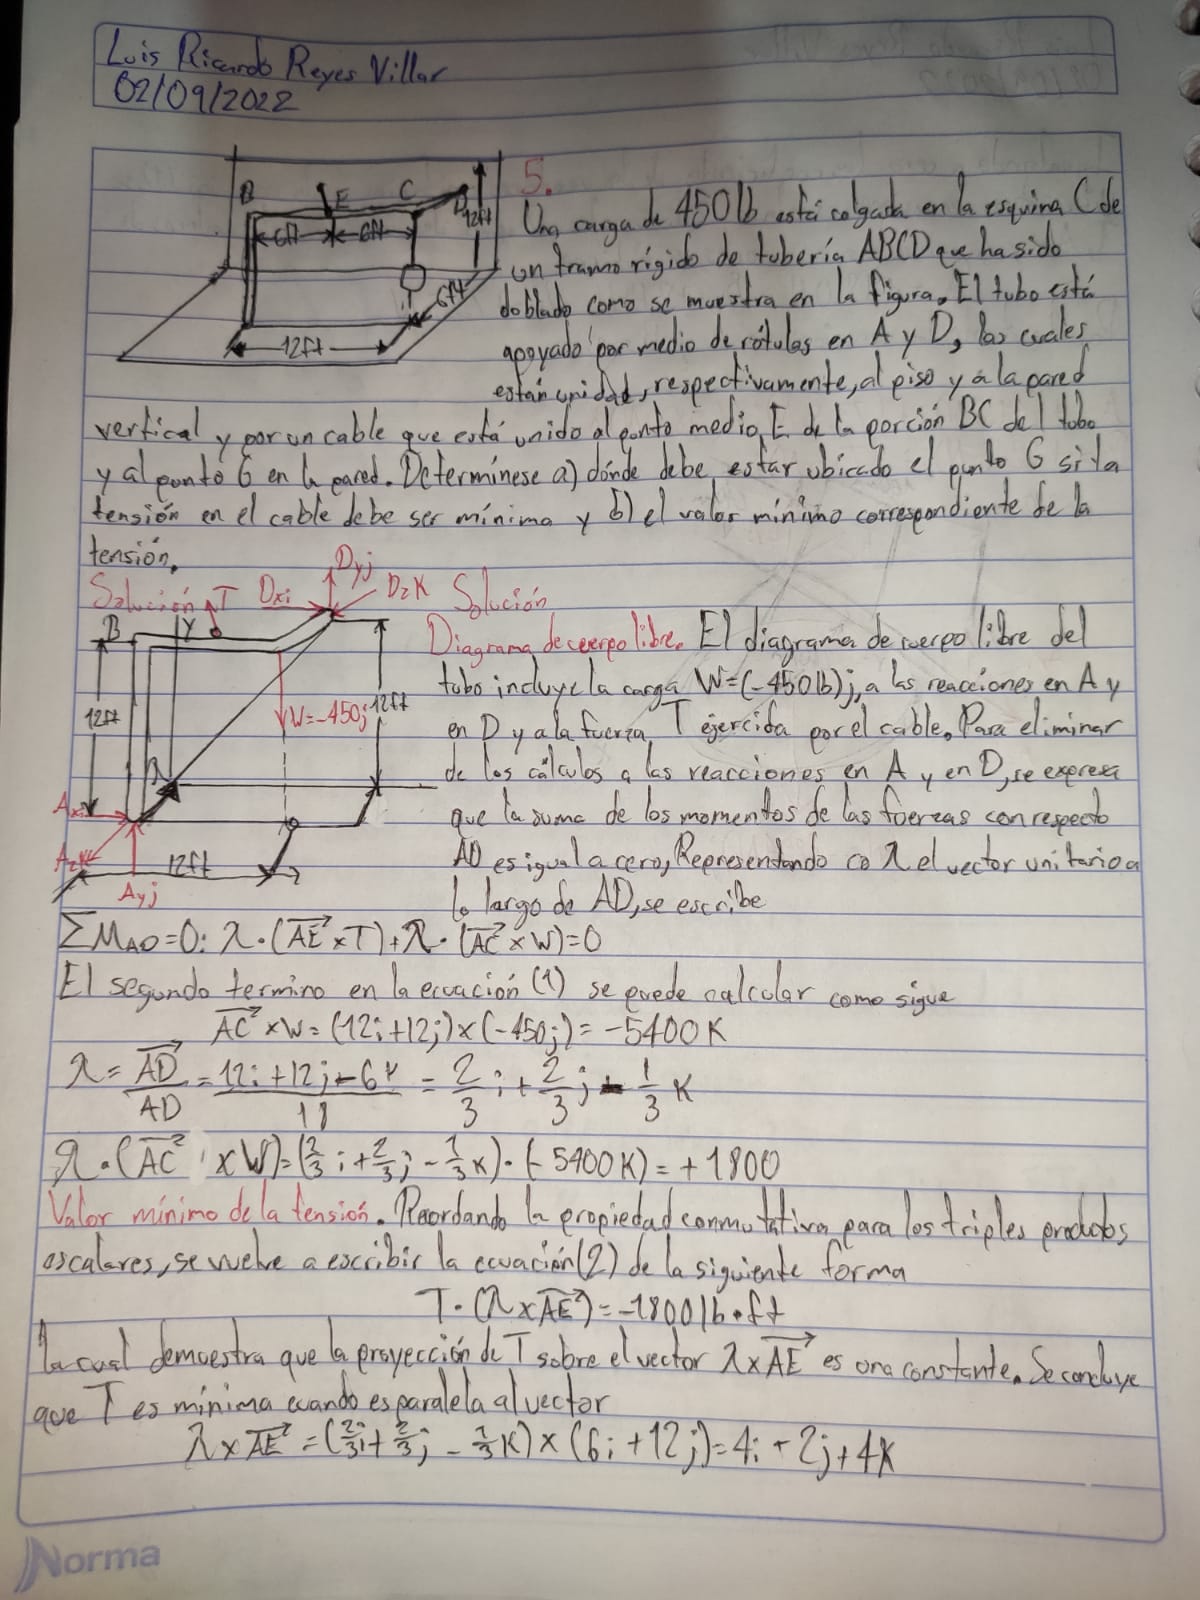 Luis Ricardo Reyes Villar
02/09/2022
B E C D
6ft 6ft 12ft
6ft
12ft
5.
Una carga de 450lb está colgada en la esquina C de
un tramo rígido de tubería ABCD que ha sido
doblado como se muestra en la figura. El tubo está
apoyado por medio de rótulas en A y D, las cuales
están unidad, respectivamente, al piso y a la pared
vertical y por un cable que está unido al punto medio E de la porción BC del tubo
y al punto G en la pared. Determínese a) dónde debe estar ubicado el punto G si la
tensión en el cable debe ser mínima y b) el valor mínimo correspondiente de la
tensión.
Solución T Dxi Dyj DzK Solución
B Y
Diagrama de cuerpo libre. El diagrama de cuerpo libre del
tubo incluye la carga W=(-450lb)j, a las reacciones en A y
12ft W=-450j 12ft
en D y a la fuerza T ejercida por el cable. Para eliminar
de los cálculos a las reacciones en A y en D, se expresa
Axi
que la suma de los momentos de las fuerzas con respecto
AzK
AD es igual a cero, Representando co λ el vector unitario a
12ft
Ayj
lo largo de AD, se escribe
ΣMAD=0: λ·(AE×T)+λ·(AC×W)=0
El segundo termino en la ecuación (1) se puede calcular como sigue
AC×W=(12i+12j)×(-450j)=-5400K
λ=AD/AD=12i+12j-6K/18=2/3i+2/3j-1/3K
λ·(AC×W)=(2/3i+2/3j-1/3K)·(-5400K)=+1800
Valor mínimo de la tensión. Recordando la propiedad conmutativa para los triples productos
escalares, se vuelve a escribir la ecuación (2) de la siguiente forma
T·(λ×AE)=-1800lb·ft
la cual demuestra que la proyección de T sobre el vector λ×AE es una constante. Se concluye
que T es mínima cuando es paralela al vector
λ×AE=(2/3i+2/3j-1/3K)×(6i+12j)=4i-2j+4K
Norma